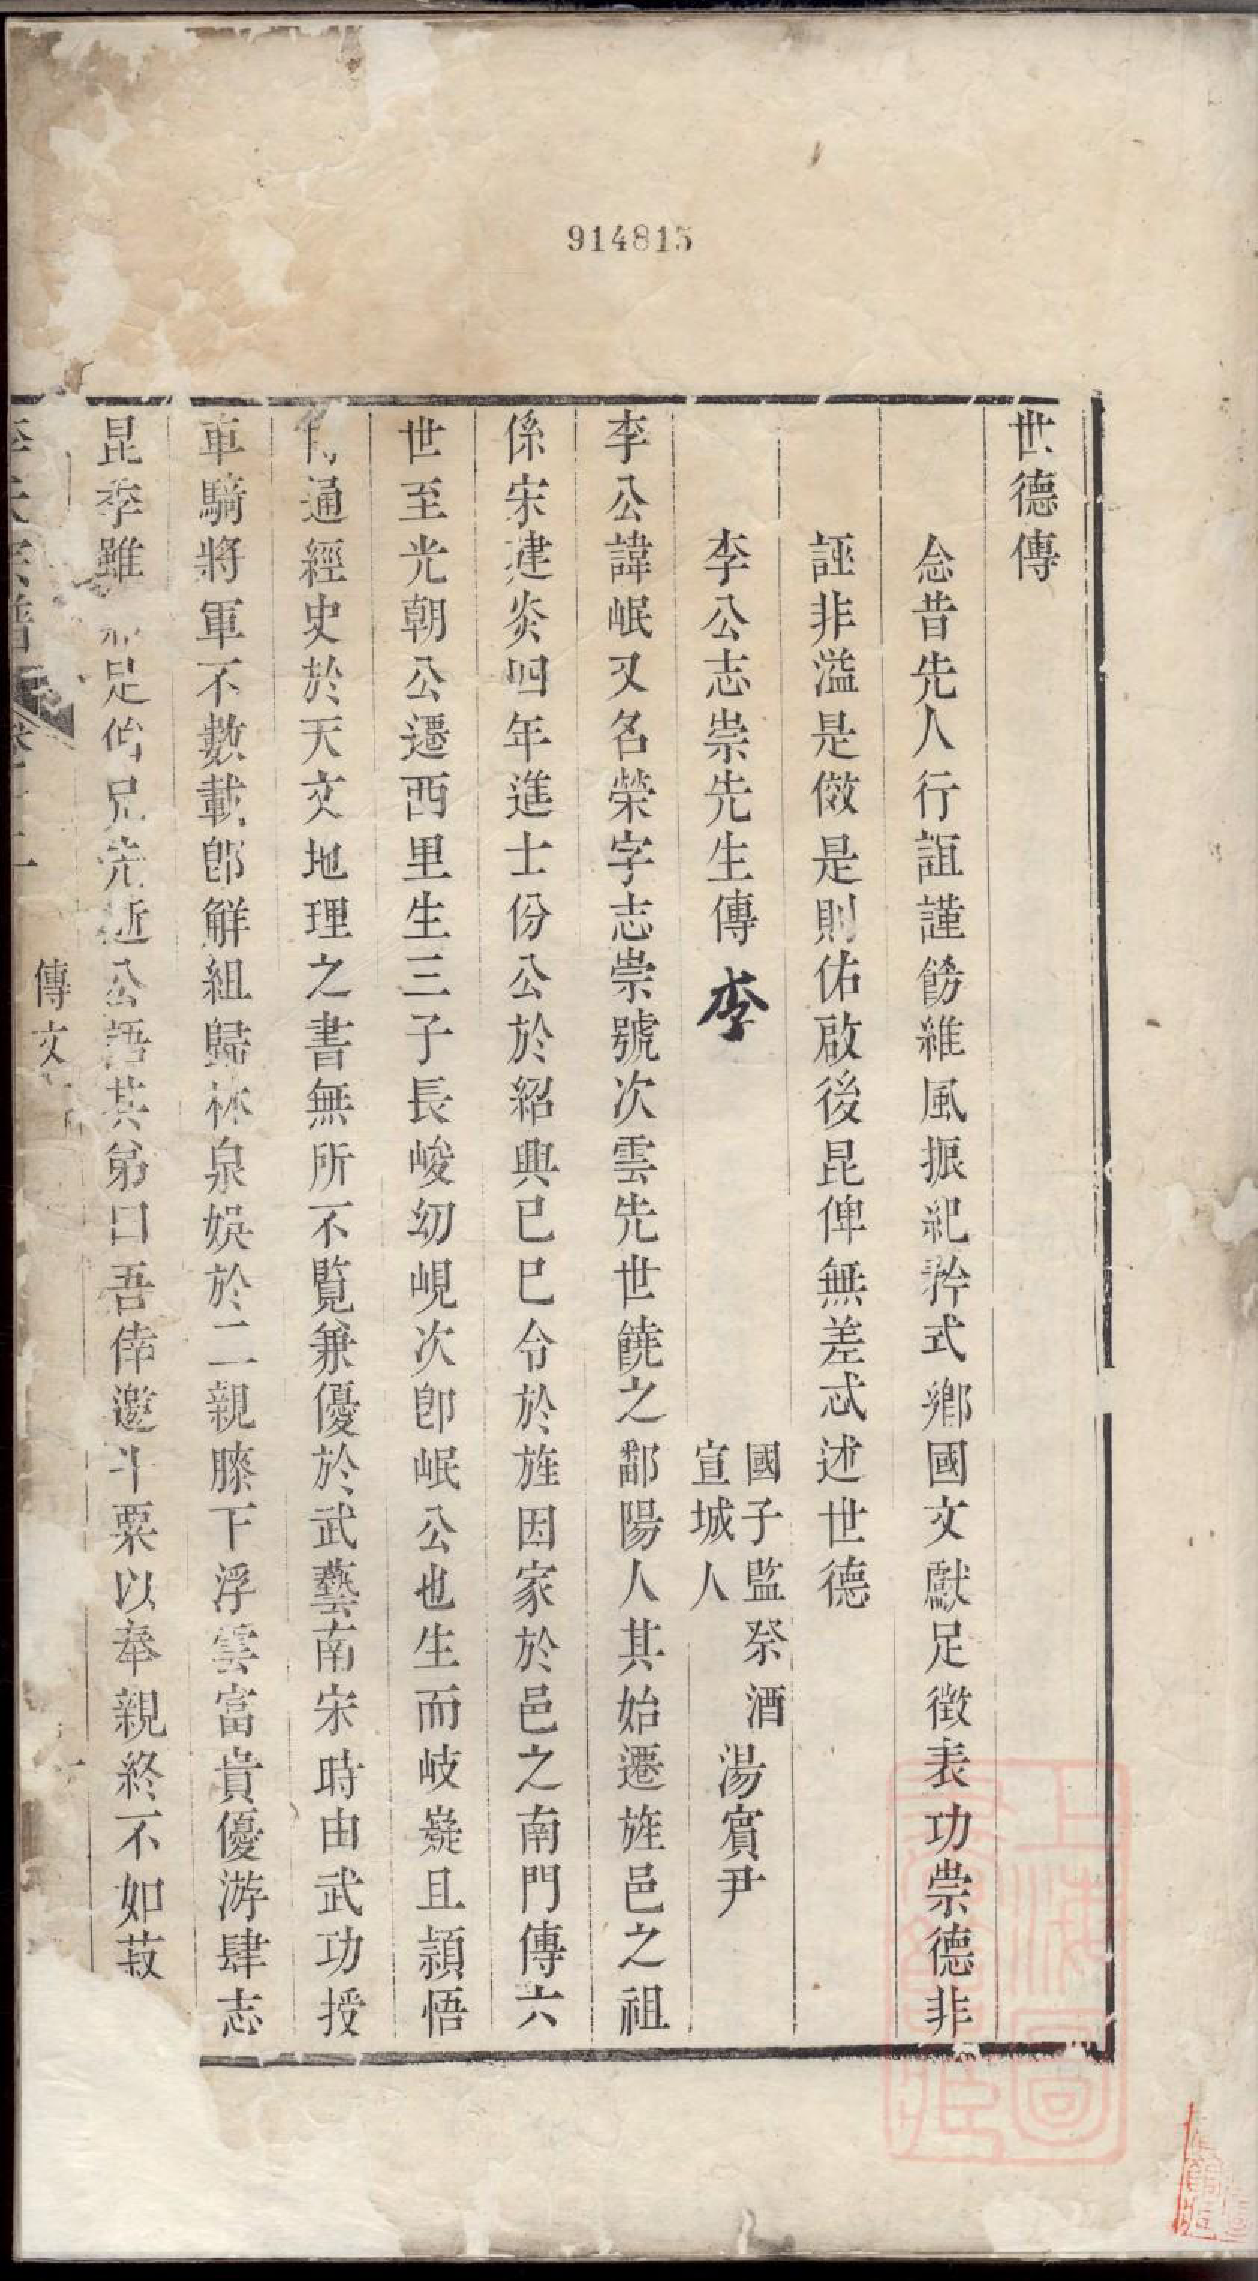 914815
世德傳
念昔先人行誼謹飭維風振紀矜式鄉國文獻足徵表功崇德非
誣非溢是傚是則佑啟後昆俾無差忒述世德
李公志崇先生傳 李 國子監祭酒 宣城人 湯賓尹
李公諱岷又名榮字志崇號次雲先世饒之鄱陽人其始遷旌邑之祖
係宋建炎四年進士份公於紹興己巳令於旌因家於邑之南門傳六
世至光朝公遷西里生三子長峻幼峴次卽岷公也生而岐嶷且頴悟
通經史於天文地理之書無所不覧兼優於武藝南宋時由武功授
車騎將軍不數載卽解組歸林泉娛於二親膝下浮雲富貴優游肆志
昆季雖足兄先逝公語其弟曰吾倖邀斗粟以奉親終不如菽
李氏宗譜 卷十二 傳文
上海圖書館藏